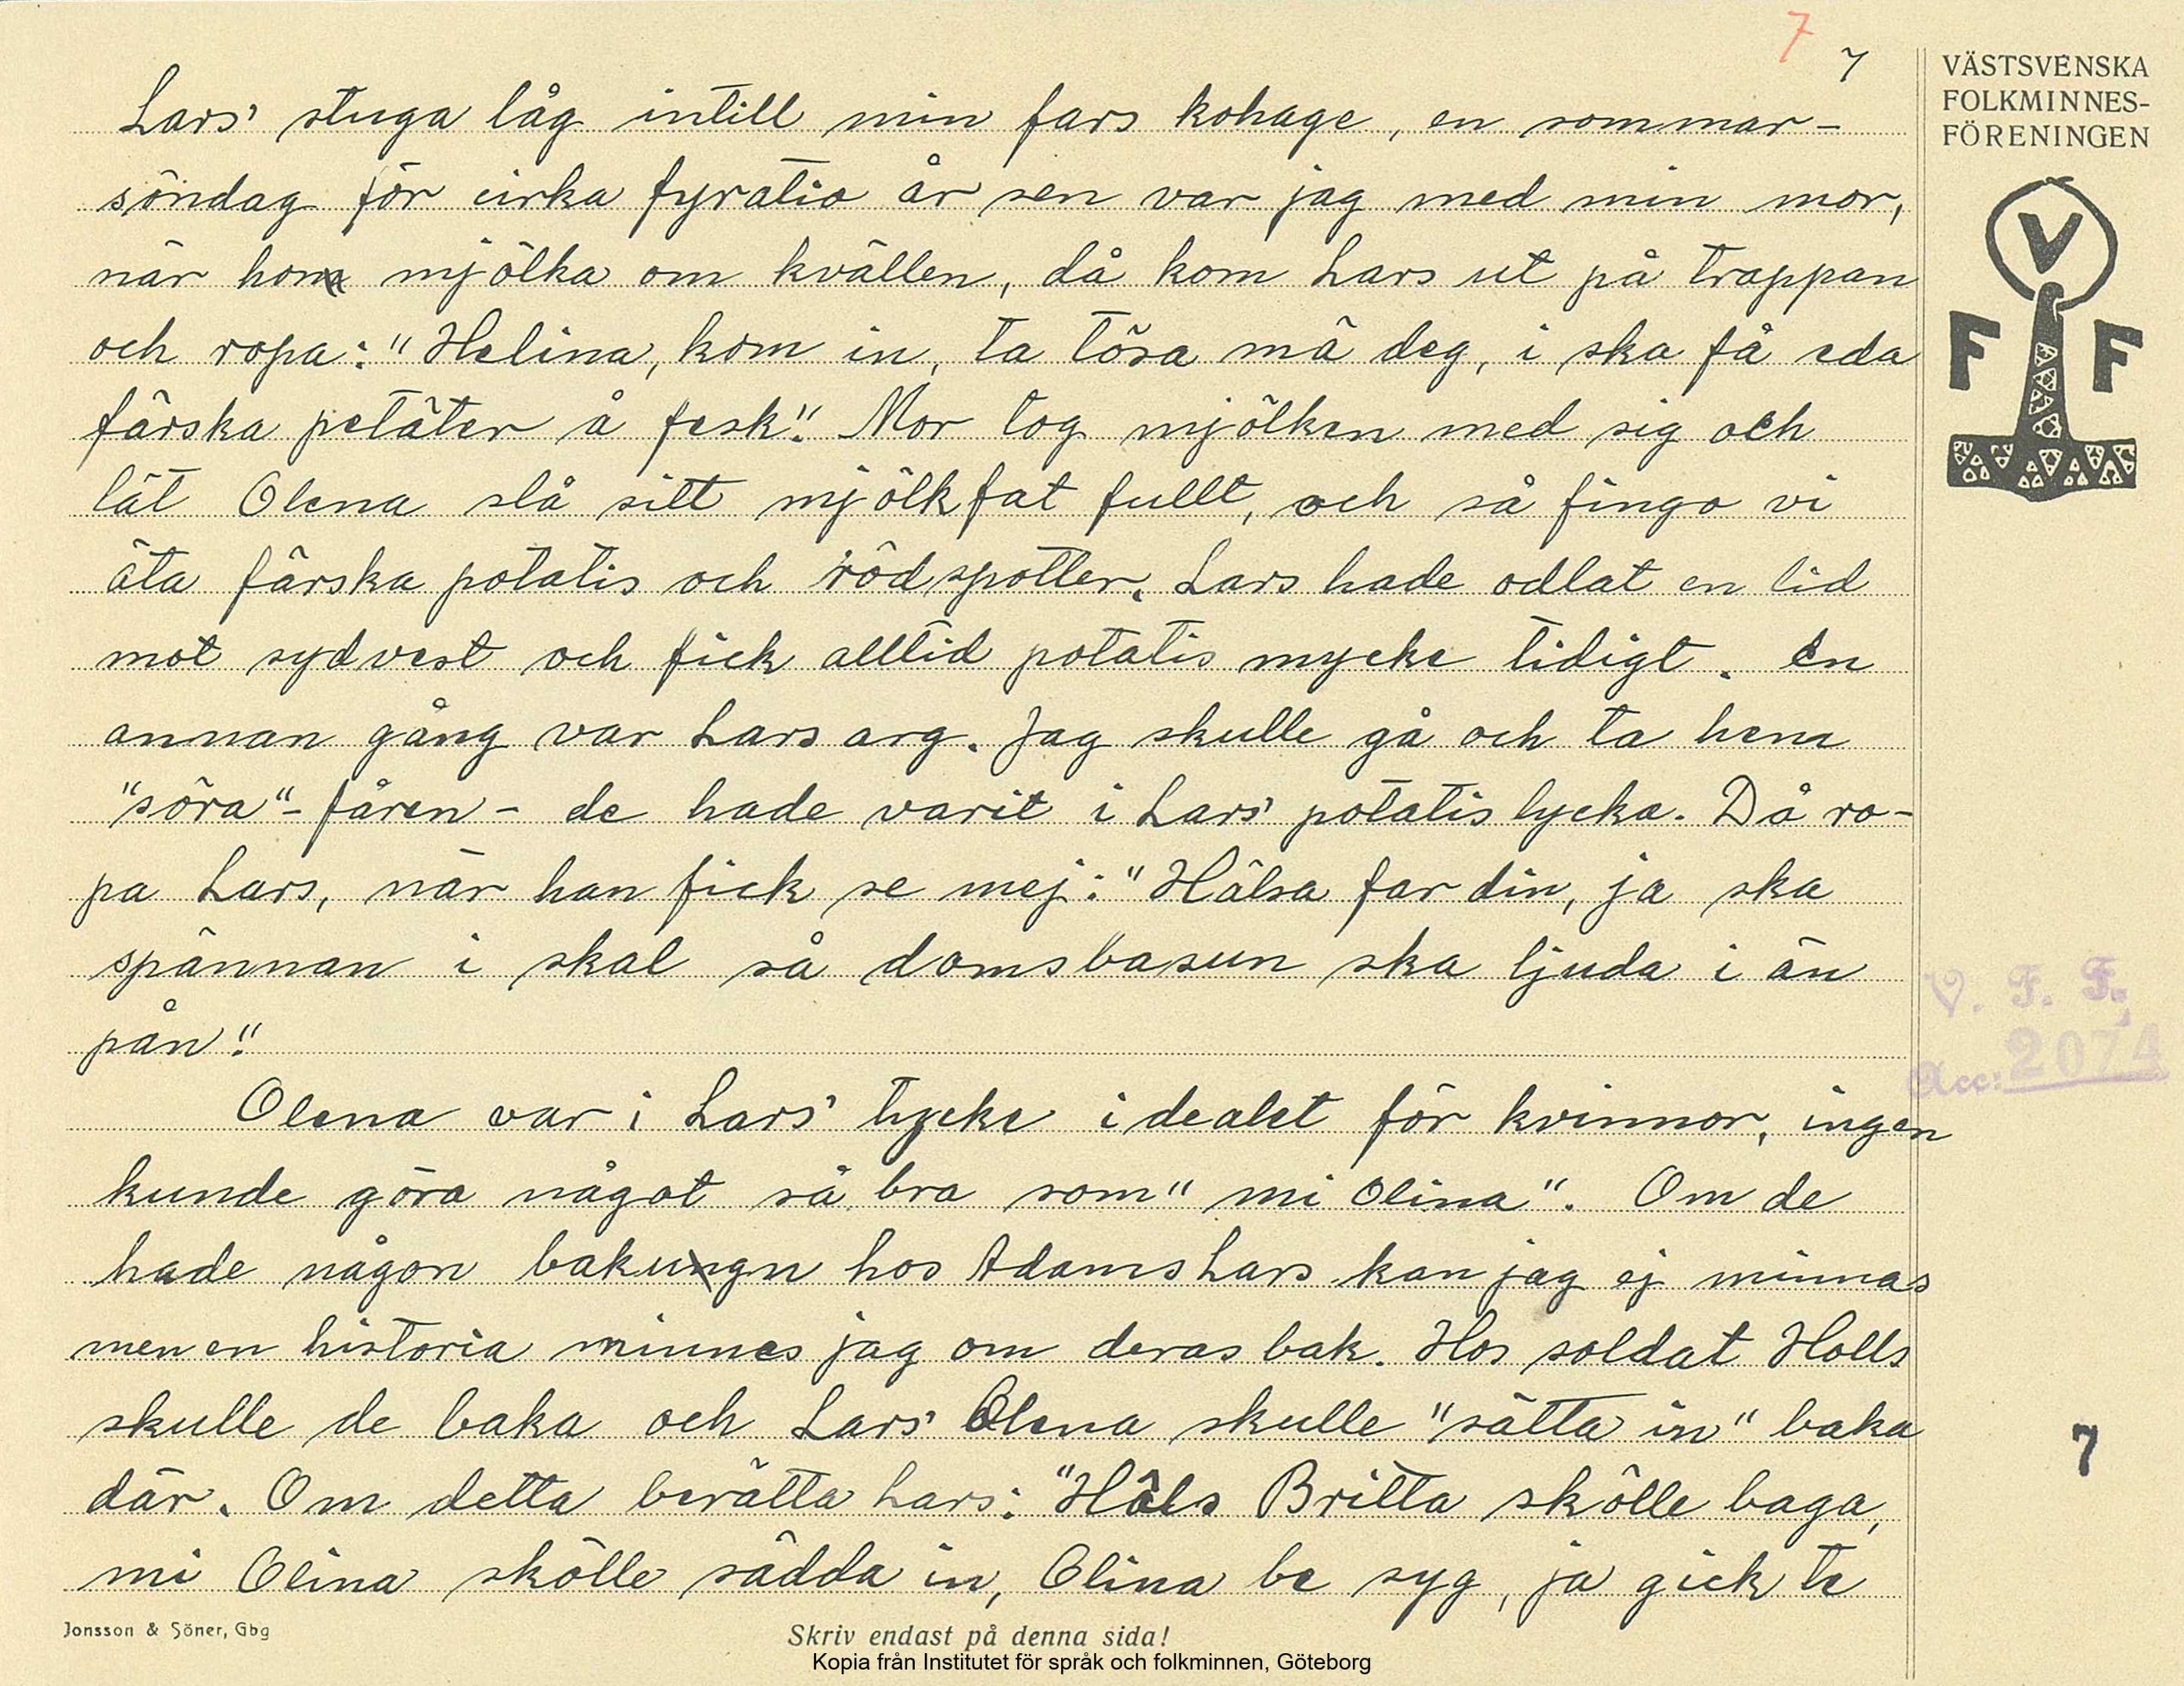 7 7
VÄSTSVENSKA
FOLKMINNES-
FÖRENINGEN
V
F F
Lars' stuga låg intill min fars kohage, en sommar-
söndag för cirka fyratio år sen var jag med min mor,
när hon mjölka om kvällen, då kom Lars ut på trappan
och ropa: "Helina, kom in, ta tösa mä deg, i ska få eda
färska petäter å fesk". Mor tog mjölken med sig och
lät Olena slå sitt mjölkfat fullt, och så fingo vi
äta färska potatis och rödspotter. Lars hade odlat en lid
mot sydvest och fick alltid potatis mycke tidigt. En
annan gång var Lars arg. Jag skulle gå och ta hem
"söra"- fåren - de hade varit i Lars' potatislycka. Då ro-
pa Lars, när han fick se mej: "Hälsa far din, ja ska
spännan i skal så domsbasun ska ljuda i än
pån".
Olena var i Lars' tycke idealet för kvinnor, ingen
kunde göra något så bra som "mi Olina". Om de
hade någon bakugn hos Adams Lars kan jag ej minnas
men en historia minnes jag om deras bak. Hos soldat Holls
skulle de baka och Lars' Olena skulle "sätta in" baka
där. Om detta berätta Lars: "Håls Britta skölle baga,
mi Olina skölle sädda in, Olina be syg, ja gick te
V. F. F.
Acc: 2074
7
Jonsson & Söner, Gbg
Skriv endast på denna sida!
Kopia från Institutet för språk och folkminnen, Göteborg